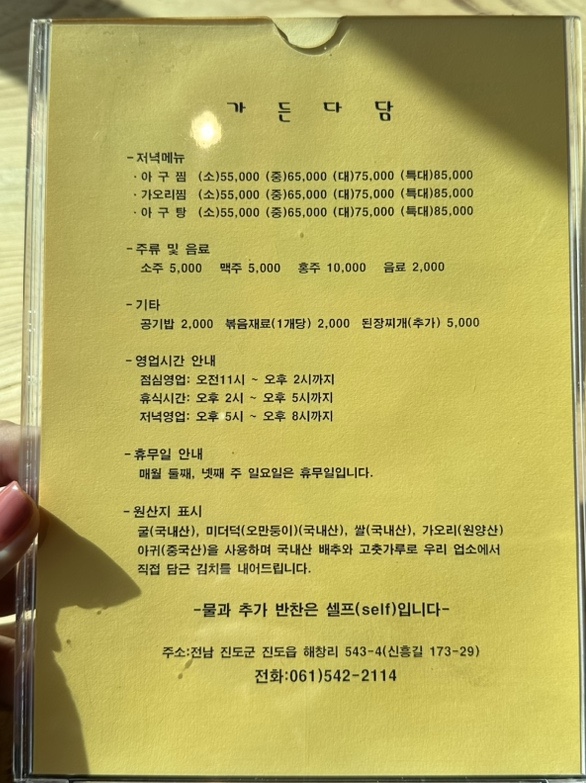 가 든 다 담
-저녁메뉴
·아 구 찜 (소)55,000 (중)65,000 (대)75,000 (특대)85,000
·가오리찜 (소)55,000 (중)65,000 (대)75,000 (특대)85,000
·아 구 탕 (소)55,000 (중)65,000 (대)75,000 (특대)85,000
-주류 및 음료
소주 5,000 맥주 5,000 홍주 10,000 음료 2,000
-기타
공기밥 2,000 볶음재료(1개당) 2,000 된장찌개(추가) 5,000
-영업시간 안내
점심영업: 오전11시 ~ 오후 2시까지
휴식시간: 오후 2시 ~ 오후 5시까지
저녁영업: 오후 5시 ~ 오후 8시까지
-휴무일 안내
매월 둘째, 넷째 주 일요일은 휴무일입니다.
-원산지 표시
굴(국내산), 미더덕(오만둥이)(국내산), 쌀(국내산), 가오리(원양산)
아귀(중국산)을 사용하며 국내산 배추와 고춧가루로 우리 업소에서
직접 담근 김치를 내어드립니다.
-물과 추가 반찬은 셀프(self)입니다-
주소:전남 진도군 진도읍 해창리 543-4(신흥길 173-29)
전화:061)542-2114